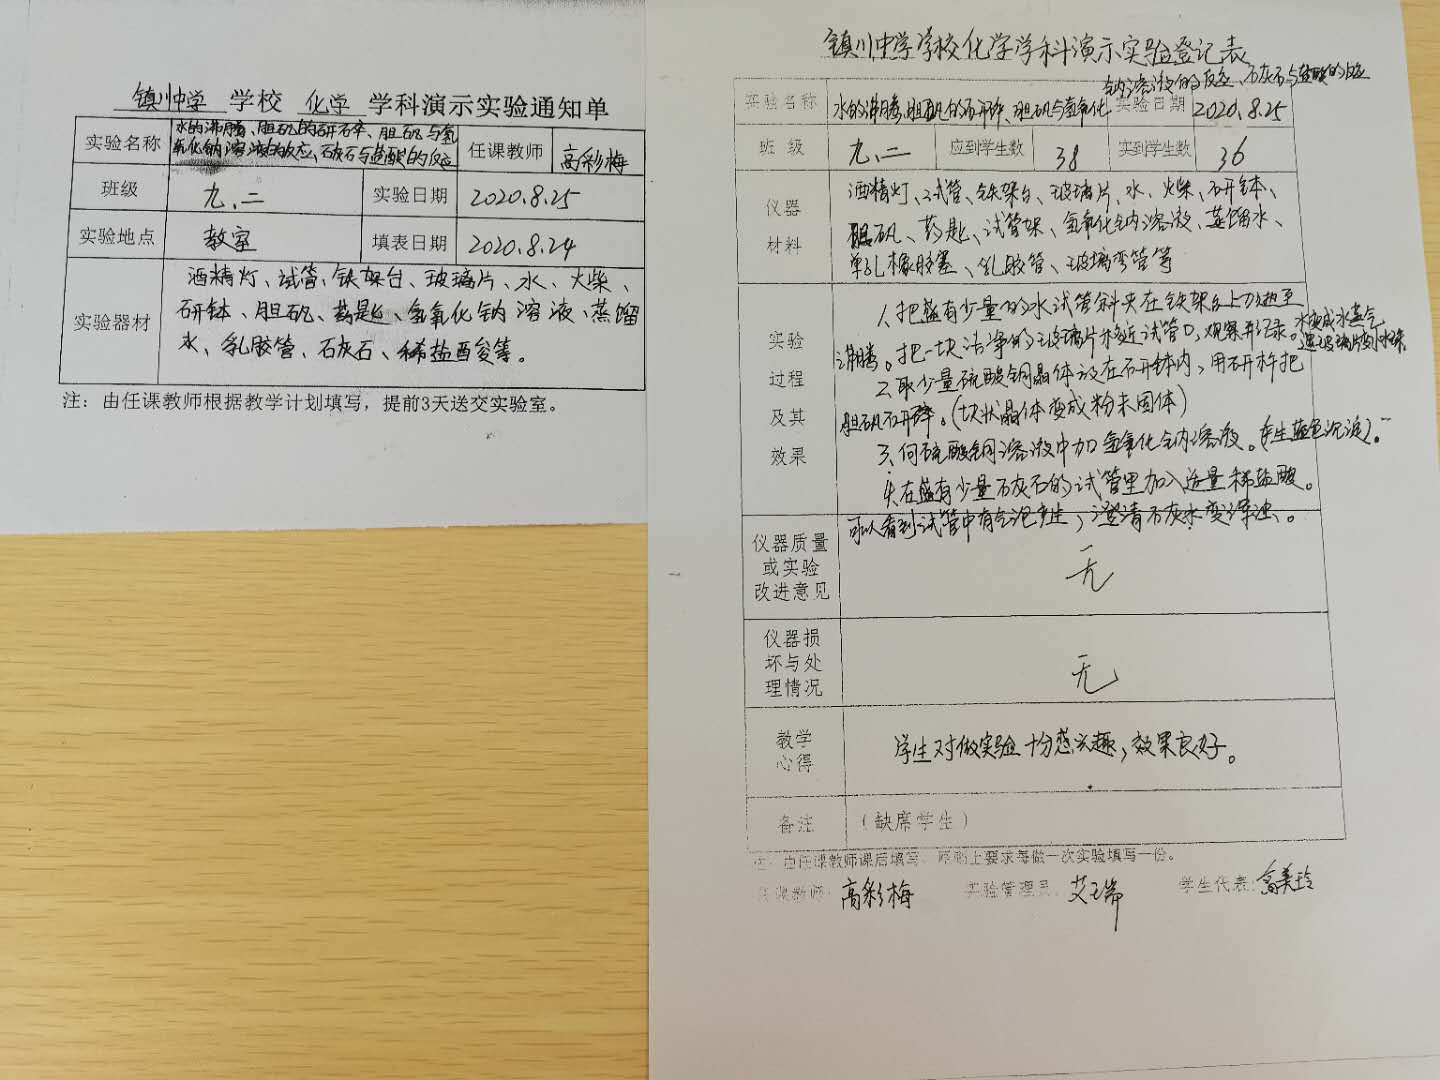 镇川中学 学校 化学 学科演示实验通知单
实验名称
水的沸腾、胆矾的研碎、胆矾与氢
氧化钠溶液的反应、石灰石与盐酸的反应
任课教师
高彩梅
班级
九、二
实验日期
2020.8.25
实验地点
教室
填表日期
2020.8.24
实验器材
酒精灯、试管、铁架台、玻璃片、水、火柴、
研钵、胆矾、药匙、氢氧化钠溶液、蒸馏
水、乳胶管、石灰石、稀盐酸等。
注：由任课教师根据教学计划填写，提前3天送交实验室。
镇川中学学校化学学科演示实验登记表
钠溶液的反应、石灰石与盐酸的反应
实验名称
水的沸腾、胆矾的研碎、胆矾与氢氧化
实验日期
2020.8.25
班 级
九、二
应到学生数
38
实到学生数
36
仪器
材料
酒精灯、试管、铁架台、玻璃片、水、火柴、研钵、
胆矾、药匙、试管架、氢氧化钠溶液、蒸馏水、
单孔橡胶塞、乳胶管、玻璃弯管等
实验
过程
及其
效果
1、把盛有少量的水试管斜夹在铁架台上加热至
沸腾。把一块洁净的玻璃片移近试管口，观察并记录。水变成水蒸气
遇玻璃片变小水珠
2、取少量硫酸铜晶体放在研钵内，用研杵把
胆矾研碎。（块状晶体变成粉末固体）
3、向硫酸铜溶液中加氢氧化钠溶液。（产生蓝色沉淀）。
4、在盛有少量石灰石的试管里加入适量稀盐酸。
可以看到试管中有气泡产生，澄清石灰水变浑浊。
仪器质量
或实验
改进意见
无
仪器损
坏与处
理情况
无
教学
心得
学生对做实验十分感兴趣，效果良好。
备注
（缺席学生）
注：由任课教师课后填写，原则上要求每做一次实验填写一份。
任课教师：高彩梅 实验管理员：艾瑞 学生代表：美玲